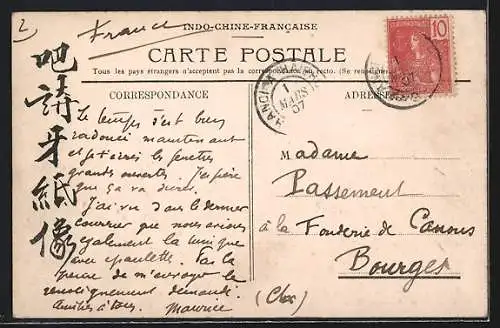 2
France
INDO-CHINE-FRANÇAISE
CARTE POSTALE
Tous les pays étrangers n'acceptent pas la correspondance au recto. (Se renseigner
CORRESPONDANCE
ADRESSE
10
1
MARS
07
牙紙像
Le temps s'est bien
radouci maintenant
et j'écris les fenêtres
grands ouvertes. J'espère
que ça va durer.
J'ai vu dans le dernier
courrier que nous avions
également la tunique
avec épaulette. Pas la
peine de m'envoyer le
renseignement demandé.
Amitiés à tous. Maurice
Madame
Passement
à la Fonderie de Canons
Bourges
(Cher)